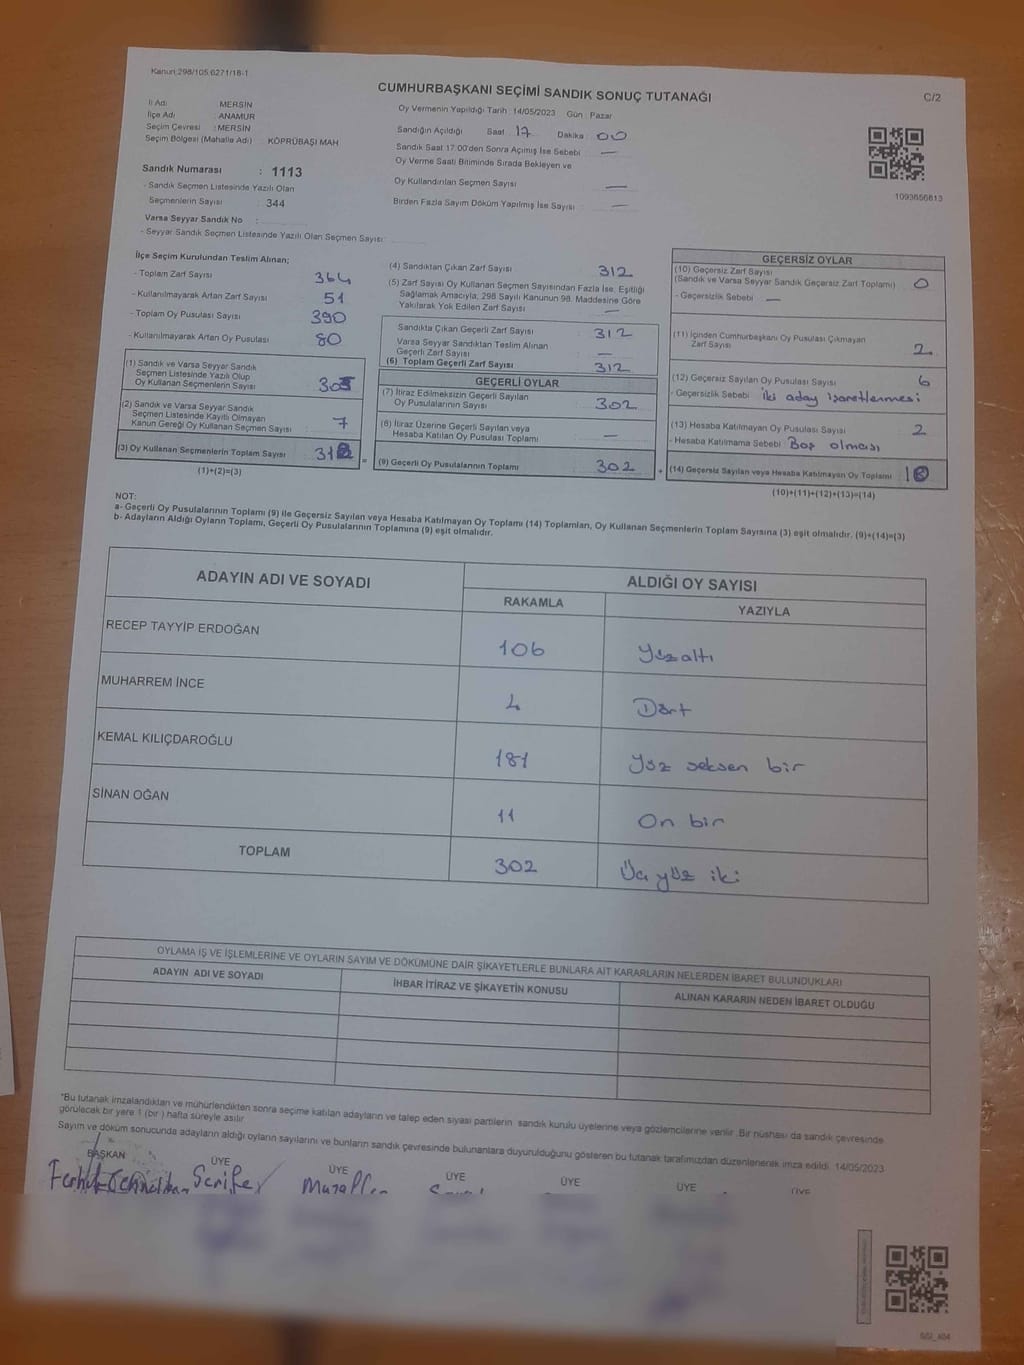 Kanun:298/105,6271/18-1
CUMHURBAŞKANI SEÇİMİ SANDIK SONUÇ TUTANAĞI
C/2
İl Adı MERSİN
İlçe Adı : ANAMUR
Seçim Çevresi : MERSİN
Seçim Bölgesi (Mahalle Adı) : KÖPRÜBAŞI MAH
Sandık Numarası : 1113
- Sandık Seçmen Listesinde Yazılı Olan
Seçmenlerin Sayısı : 344
Varsa Seyyar Sandık No :
- Seyyar Sandık Seçmen Listesinde Yazılı Olan Seçmen Sayısı:
Oy Vermenin Yapıldığı Tarih : 14/05/2023 Gün : Pazar
Sandığın Açıldığı Saat 17 Dakika : 00
Sandık Saat 17:00'den Sonra Açımış İse Sebebi : —
Oy Verme Saati Bitiminde Sırada Bekleyen ve
Oy Kullandırılan Seçmen Sayısı —
Birden Fazla Sayım Döküm Yapılmış İse Sayısı : —
1093656813
İlçe Seçim Kurulundan Teslim Alınan;
- Toplam Zarf Sayısı 364
- Kullanılmayarak Artan Zarf Sayısı 51
- Toplam Oy Pusulası Sayısı 390
- Kullanılmayarak Artan Oy Pusulası 80
(1) Sandık ve Varsa Seyyar Sandık
Seçmen Listesinde Yazılı Olup
Oy Kullanan Seçmenlerin Sayısı : 305
(2) Sandık ve Varsa Seyyar Sandık
Seçmen Listesinde Kayıtlı Olmayan
Kanun Gereği Oy Kullanan Seçmen Sayısı : 7
(3) Oy Kullanan Seçmenlerin Toplam Sayısı 312
(1)+(2)=(3)
(4) Sandıktan Çıkan Zarf Sayısı 312
(5) Zarf Sayısı Oy Kullanan Seçmen Sayısından Fazla İse, Eşitliği
Sağlamak Amacıyla, 298 Sayılı Kanunun 98. Maddesine Göre
Yakılarak Yok Edilen Zarf Sayısı —
Sandıkta Çıkan Geçerli Zarf Sayısı 312
Varsa Seyyar Sandıktan Teslim Alınan
Geçerli Zarf Sayısı —
(6) Toplam Geçerli Zarf Sayısı 312
GEÇERLİ OYLAR
(7) İtiraz Edilmeksizin Geçerli Sayılan
Oy Pusulalarının Sayısı 302
(8) İtiraz Üzerine Geçerli Sayılan veya
Hesaba Katılan Oy Pusulası Toplamı —
= (9) Geçerli Oy Pusulalarının Toplamı 302
GEÇERSİZ OYLAR
(10) Geçersiz Zarf Sayısı
(Sandık ve Varsa Seyyar Sandık Geçersiz Zarf Toplamı) 0
- Geçersizlik Sebebi : —
(11) İçinden Cumhurbaşkanı Oy Pusulası Çıkmayan
Zarf Sayısı 2
(12) Geçersiz Sayılan Oy Pusulası Sayısı 6
- Geçersizlik Sebebi : İki aday işaretlenmesi
(13) Hesaba Katılmayan Oy Pusulası Sayısı 2
- Hesaba Katılmama Sebebi : Boş olması
+ (14) Geçersiz Sayılan veya Hesaba Katılmayan Oy Toplamı 10
(10)+(11)+(12)+(13)=(14)
NOT:
a- Geçerli Oy Pusulalarının Toplamı (9) ile Geçersiz Sayılan veya Hesaba Katılmayan Oy Toplamı (14) Toplamları, Oy Kullanan Seçmenlerin Toplam Sayısına (3) eşit olmalıdır. (9)+(14)=(3)
b- Adayların Aldığı Oyların Toplamı, Geçerli Oy Pusulalarının Toplamına (9) eşit olmalıdır.
ADAYIN ADI VE SOYADI ALDIĞI OY SAYISI
RAKAMLA YAZIYLA
RECEP TAYYİP ERDOĞAN 106 Yüzaltı
MUHARREM İNCE 4 Dört
KEMAL KILIÇDAROĞLU 181 Yüz seksen bir
SİNAN OĞAN 11 On bir
TOPLAM 302 Üç yüz iki
OYLAMA İŞ VE İŞLEMLERİNE VE OYLARIN SAYIM VE DÖKÜMÜNE DAİR ŞİKAYETLERLE BUNLARA AİT KARARLARIN NELERDEN İBARET BULUNDUKLARI
ADAYIN ADI VE SOYADI İHBAR İTİRAZ VE ŞİKAYETİN KONUSU ALINAN KARARIN NEDEN İBARET OLDUĞU
*Bu tutanak imzalandıktan ve mühürlendikten sonra seçime katılan adayların ve talep eden siyasi partilerin sandık kurulu üyelerine veya gözlemcilerine verilir. Bir nüshası da sandık çevresinde
görülecek bir yere 1 (bir) hafta süreyle asılır
Sayım ve döküm sonucunda adayların aldığı oyların sayılarını ve bunların sandık çevresinde bulunanlara duyurulduğunu gösteren bu tutanak tarafımızdan düzenlenerek imza edildi. 14/05/2023
BAŞKAN ÜYE ÜYE ÜYE ÜYE ÜYE ÜYE